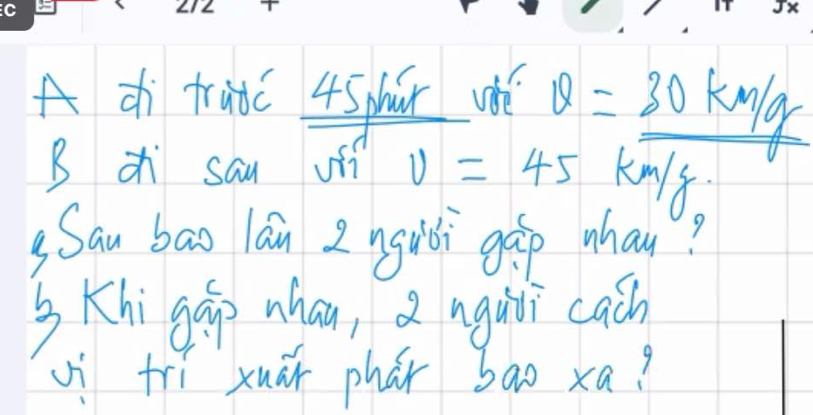 EC
2/2
A đi trước 45 phút với v = 30 km/g
B đi sau với v = 45 km/g.
a, Sau bao lâu 2 người gặp nhau?
b, Khi gặp nhau, 2 người cách
vị trí xuất phát bao xa?